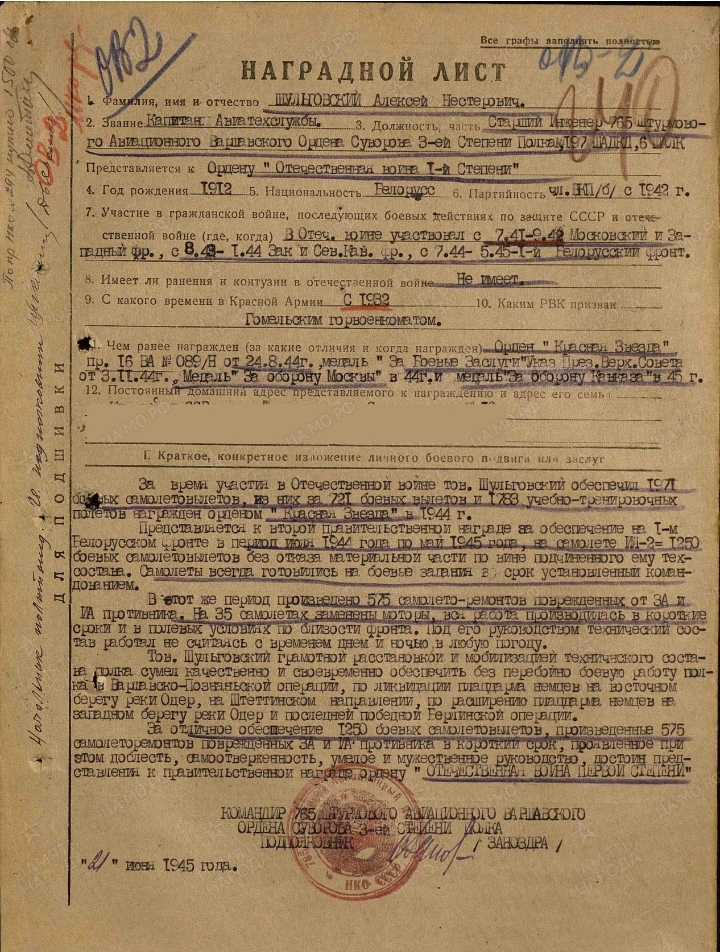 Все графы заполнять полностью
ОВ2
НАГРАДНОЙ ЛИСТ
1. Фамилия, имя и отчество ШУЛЬГОВСКИЙ Алексей Нестерович.
2. Звание Капитан Авиатехслужбы. 3. Должность, часть Старший Инженер 765 Штурмово-
го Авиационного Варшавского Ордена Суворова 3-ей Степени Полка, 197 ШАДКД, 6 ШАК
Представляется к Ордену " Отечественная война I-й Степени"
4. Год рождения 1912 5. Национальность Белорусс 6. Партийность чл. ВКП/б/ с 1942 г.
7. Участие в гражданской войне, последующих боевых действиях по защите СССР и отече-
ственной войне (где, когда) В Отеч. войне участвовал с 7.41-9.42 Московский и За-
падный фр., с 8.43- 1.44 Зак и Сев.Кав. фр., с 7.44- 5.45-I-й Белорусский фронт.
8. Имеет ли ранения и контузии в отечественной войне Не имеет.
9. С какого времени в Красной Армии С 1932 10. Каким РВК призван
Гомельским горвоенкоматом.
11. Чем ранее награжден (за какие отличия и когда награжден) Орден " Красная Звезда"
пр. 16 ВА № 089/Н от 24.8.44г., медаль " За Боевые Заслуги" Указ През.Верх.Совета
от 3.11.44г., Медаль" За оборону Москвы" в 44г.и медаль"За оборону Кавказа"в 45 г.
12. Постоянный домашний адрес представляемого к награждению и адрес его семьи
I. Краткое, конкретное изложение личного боевого подвига или заслуг
За время участия в Отечественной войне тов. Шульговский обеспечил 1971
боевых самолетовылетов, из них за 721 боевых вылетов и 1783 учебно-тренировочных
полетов награжден орденом " Красная Звезда" в 1944 г.
Представляется к второй правительственной награде за обеспечение на I-м
Белорусском фронте в период июля 1944 года по май 1945 года, на самолете ИЛ-2= 1250
боевых самолетовылетов без отказа материальной части по вине подчиненного ему тех-
состава. Самолеты всегда готовились на боевые задания в срок установленный коман-
дованием.
В этот же период произведено 575 самолето-ремонтов поврежденных от ЗА и
ИА противника. На 35 самолетах заменены моторы, вся работа производилась в короткие
сроки и в полевых условиях по близости фронта. Под его руководством технический сос-
тав работал не считаясь с временем днем и ночью в любую погоду.
Тов. Шульговский грамотной расстановкой и мобилизацией техничнского соста-
ва полка сумел качественно и своевременно обеспечить без перебойно боевую работу пол-
ка в Варшавско-Познаньской операции, по ликвидации плацдарма немцев на восточном
берегу реки Одер, на Штеттинском направлении, по расширению плацдарма немцев на
западном берегу реки Одер и последней победной Берлинской операции.
За отличное обеспечение 1250 боевых самолетовылетов, произведенные 575
самолеторемонтов поврежденных ЗА и ИА противника в короткий срок, проявленное при
этом доблесть, самоотверженность, умелое и мужественное руководство, достоин пред-
ставления к правительственной награде ордену " ОТЕЧЕСТВЕННАЯ ВОЙНА ПЕРВОЙ СТЕПЕНИ"
КОМАНДИР 765 ШТУРМОВОГО АВИАЦИОННОГО ВАРШАВСКОГО
ОРДЕНА СУВОРОВА 3-ей СТЕПЕНИ ПОЛКА
ПОДПОЛКОВНИК / ЗАНОЗДРА /
"21" июня 1945 года.
НКО СССР
ДЛЯ ПОДШИВКИ